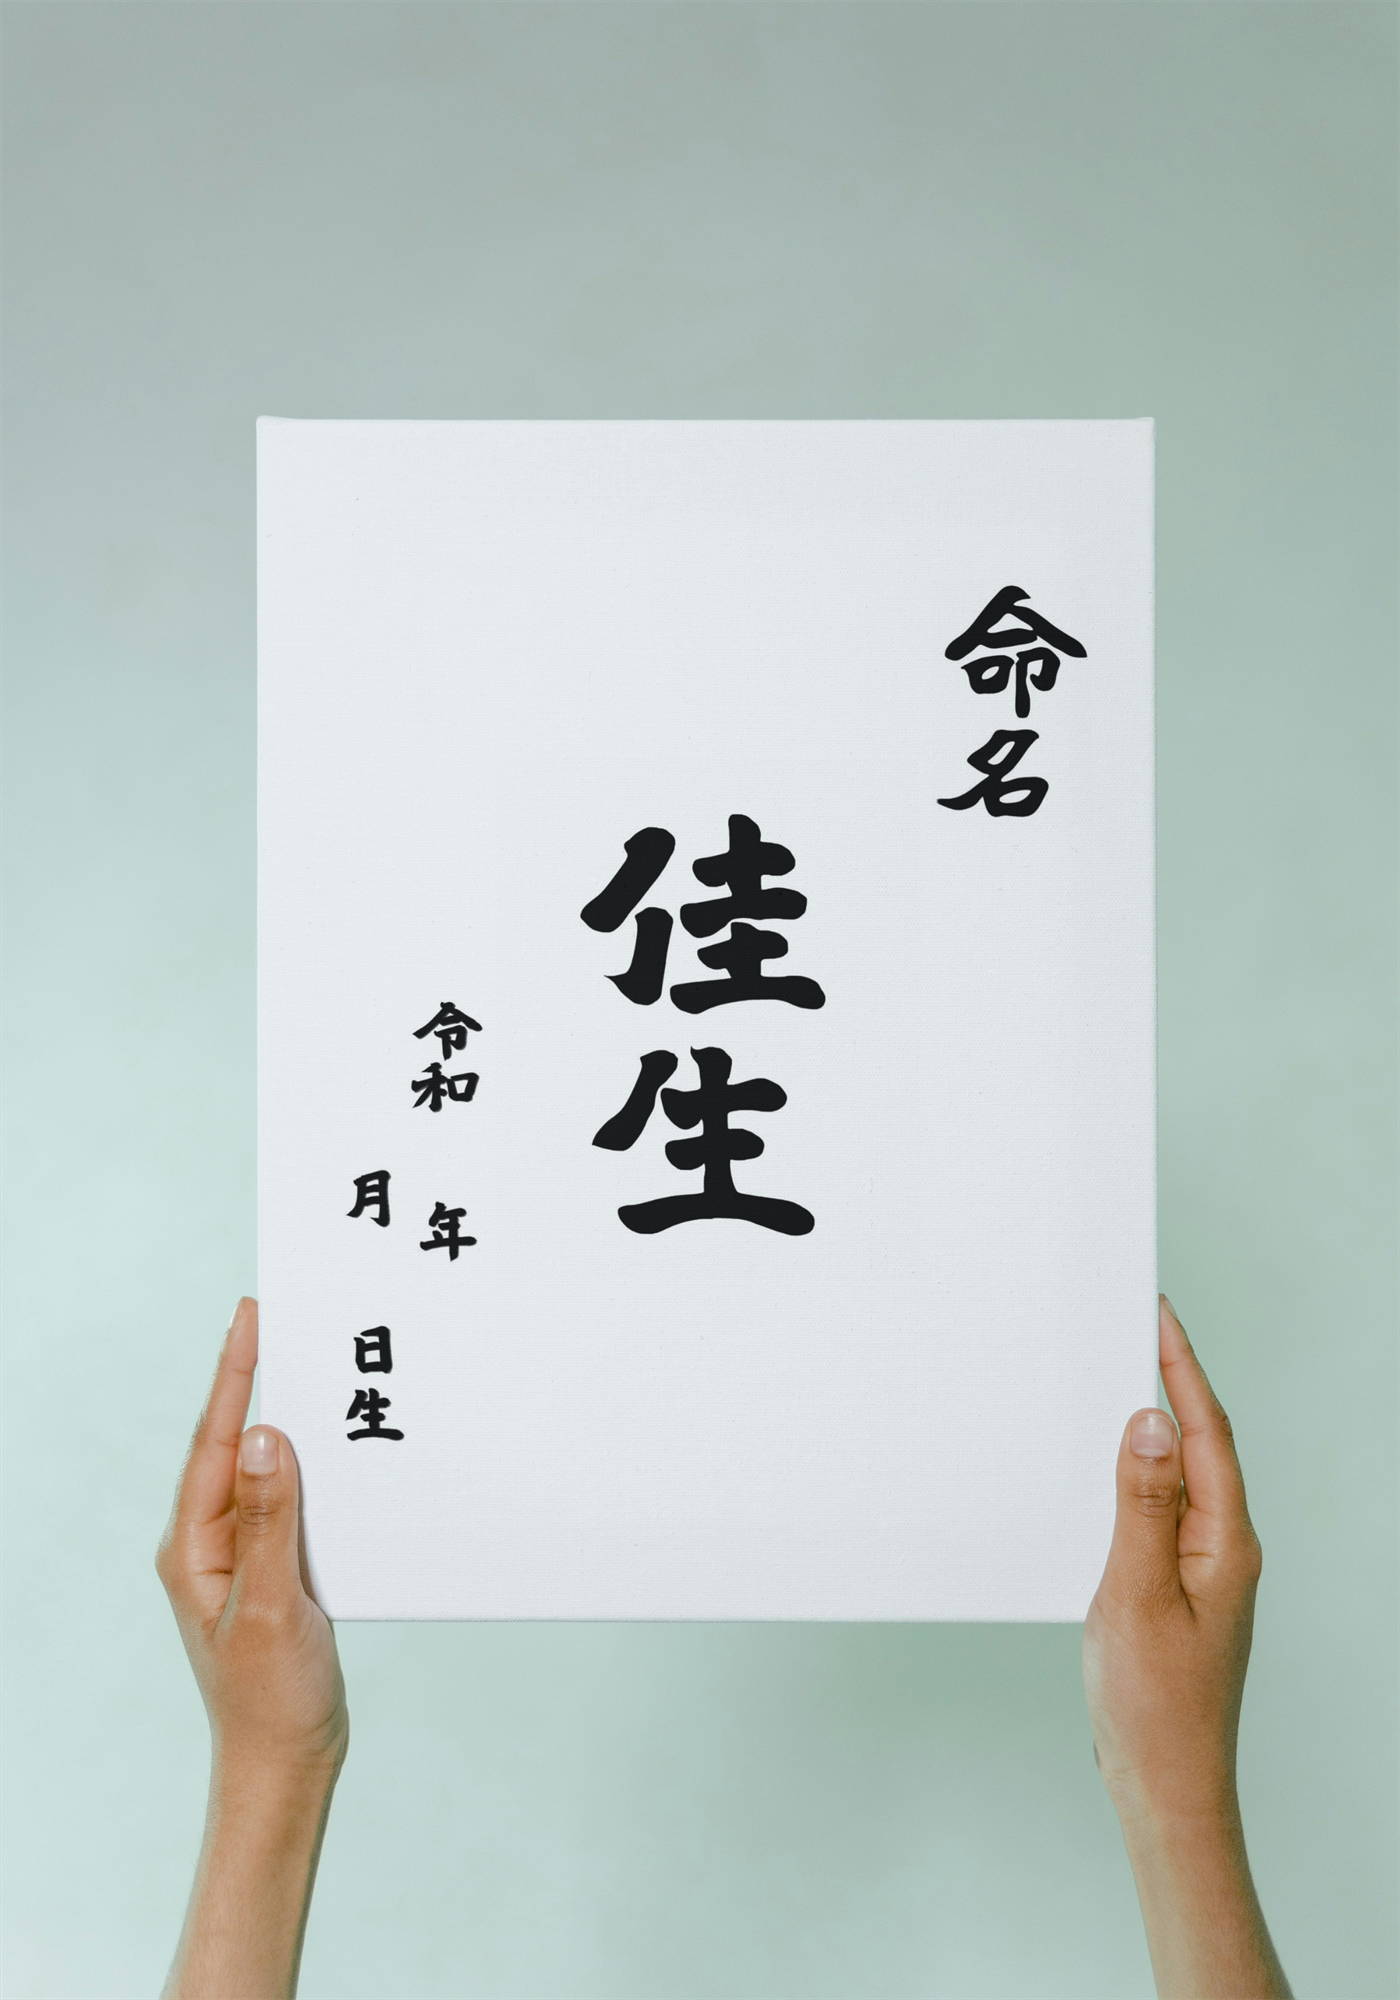 命名
佳生
令和 年
月 日生